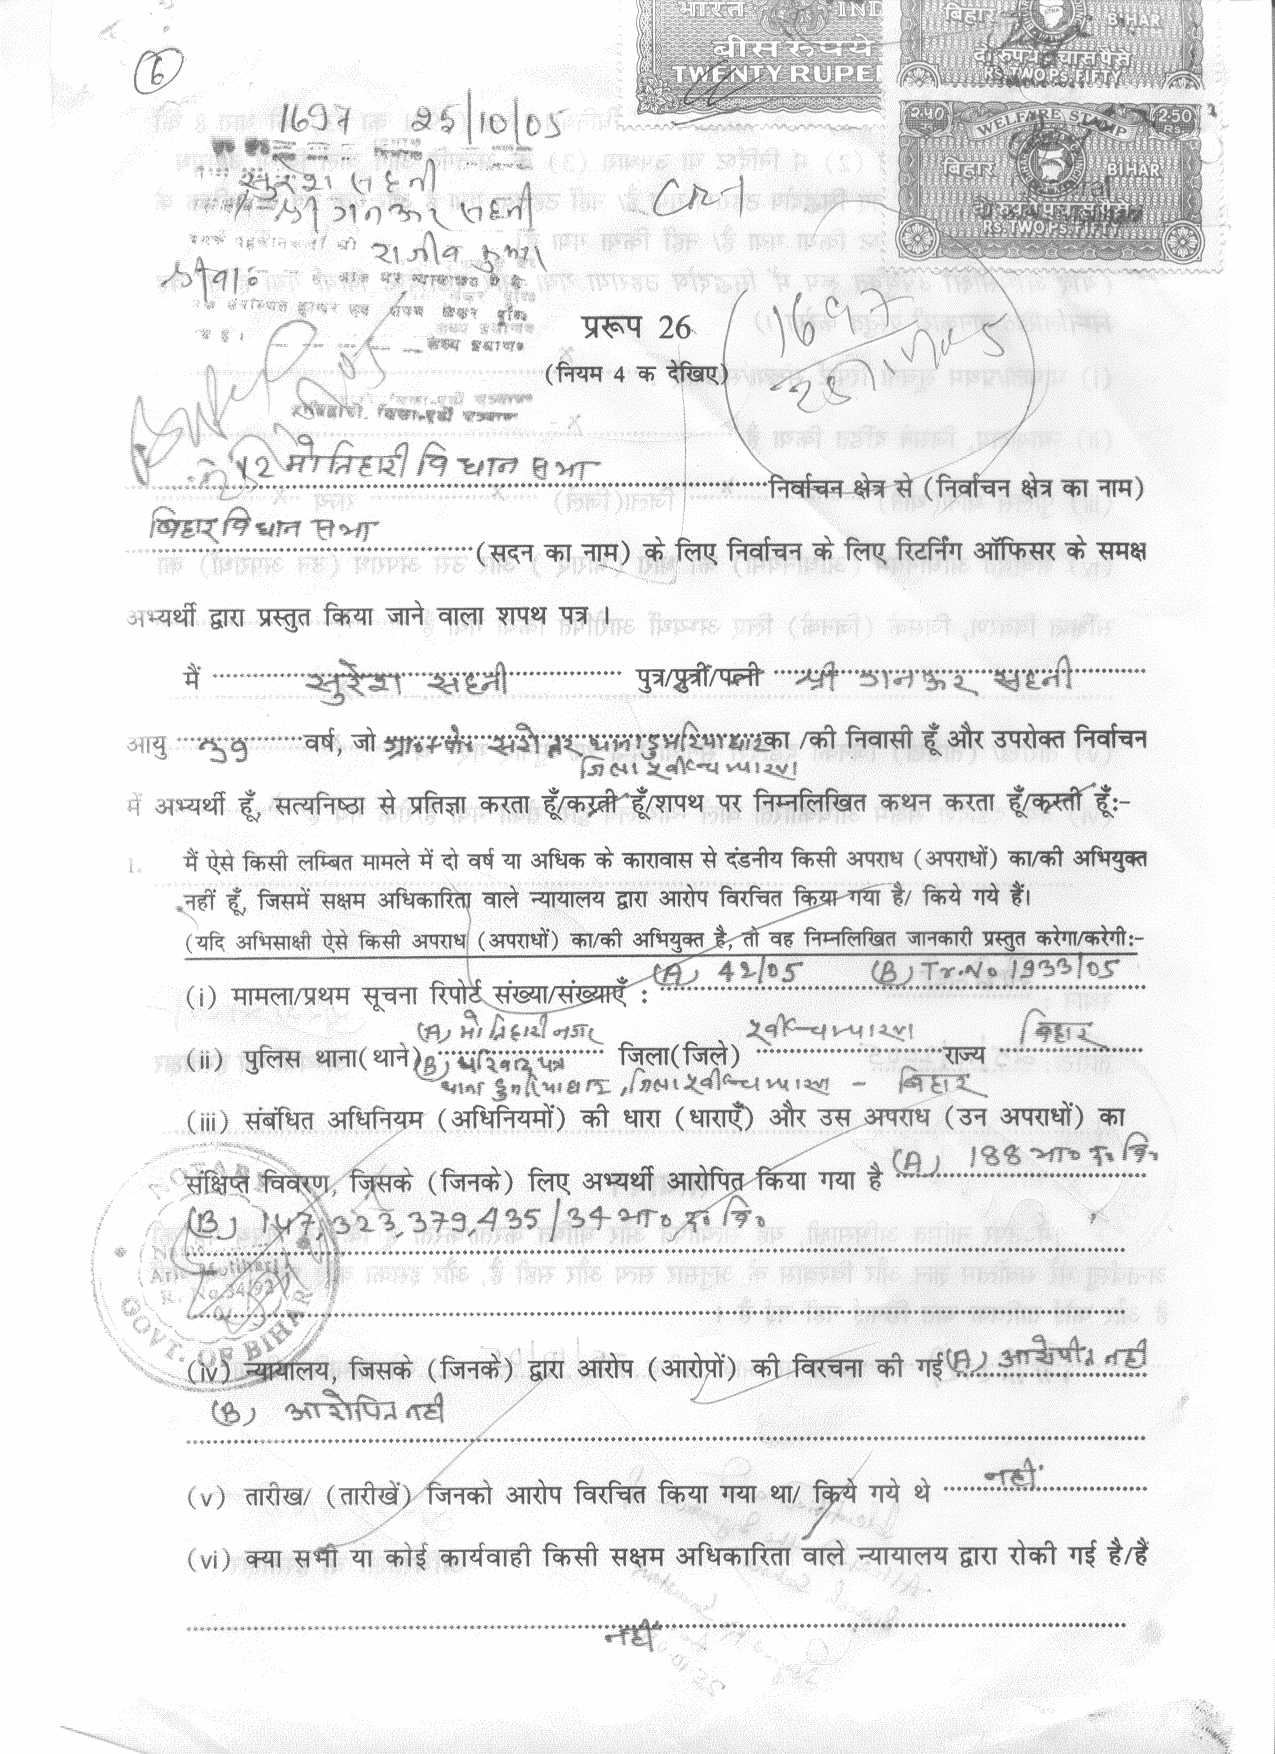 6
भारत INDI
बीस रूपये
TWENTY RUPEE
बिहार BIHAR
RS.TWO.PS.FIFTY
2.50 2.50
WELFARE STAMP
बिहार BIHAR
RS.TWO.PS.FIFTY
1697 25/10/05
सुरेश सहनी
श्री गनऊर सहनी
राजीव कुमार
प्ररूप 26
1697
(नियम 4 क देखिए)
12 मोतिहारी विधान सभा
निर्वाचन क्षेत्र से (निर्वाचन क्षेत्र का नाम)
बिहार विधान सभा
(सदन का नाम) के लिए निर्वाचन के लिए रिटर्निंग ऑफिसर के समक्ष
अभ्यर्थी द्वारा प्रस्तुत किया जाने वाला शपथ पत्र ।
मैं सुरेश सहनी पुत्र/पुत्री/पत्नी श्री गनऊर सहनी
आयु 39 वर्ष, जो ग्राम+पो० सरोतर थाना डुमरियाघाट का /की निवासी हूँ और उपरोक्त निर्वाचन
जिला पूर्वी चम्पारण
में अभ्यर्थी हूँ, सत्यनिष्ठा से प्रतिज्ञा करता हूँ/करती हूँ/शपथ पर निम्नलिखित कथन करता हूँ/करती हूँ:-
1. मैं ऐसे किसी लम्बित मामले में दो वर्ष या अधिक के कारावास से दंडनीय किसी अपराध (अपराधों) का/की अभियुक्त
नहीं हूँ, जिसमें सक्षम अधिकारिता वाले न्यायालय द्वारा आरोप विरचित किया गया है/ किये गये हैं।
(यदि अभिसाक्षी ऐसे किसी अपराध (अपराधों) का/की अभियुक्त है, तो वह निम्नलिखित जानकारी प्रस्तुत करेगा/करेगी:-
(i) मामला/प्रथम सूचना रिपोर्ट संख्या/संख्याएँ : (A) 42/05 (B) Tr.No 1933/05
(ii) पुलिस थाना(थाने) (A) मोतिहारी नगर जिला(जिले) पूर्वी चम्पारण राज्य बिहार
(B) परिवाद पत्र
थाना डुमरियाघाट, जिला पूर्वी चम्पारण - बिहार
(iii) संबंधित अधिनियम (अधिनियमों) की धारा (धाराएँ) और उस अपराध (उन अपराधों) का
संक्षिप्त विवरण, जिसके (जिनके) लिए अभ्यर्थी आरोपित किया गया है (A) 188 भा० द० वि०
(B) 147, 323, 379, 435/34 भा० द० वि०
NOTARY
GOVT. OF BIHAR
(iv) न्यायालय, जिसके (जिनके) द्वारा आरोप (आरोपों) की विरचना की गई (A) आरोपित नहीं
(B) आरोपित नहीं
(v) तारीख/ (तारीखें) जिनको आरोप विरचित किया गया था/ किये गये थे नहीं
(vi) क्या सभी या कोई कार्यवाही किसी सक्षम अधिकारिता वाले न्यायालय द्वारा रोकी गई है/हैं
नहीं